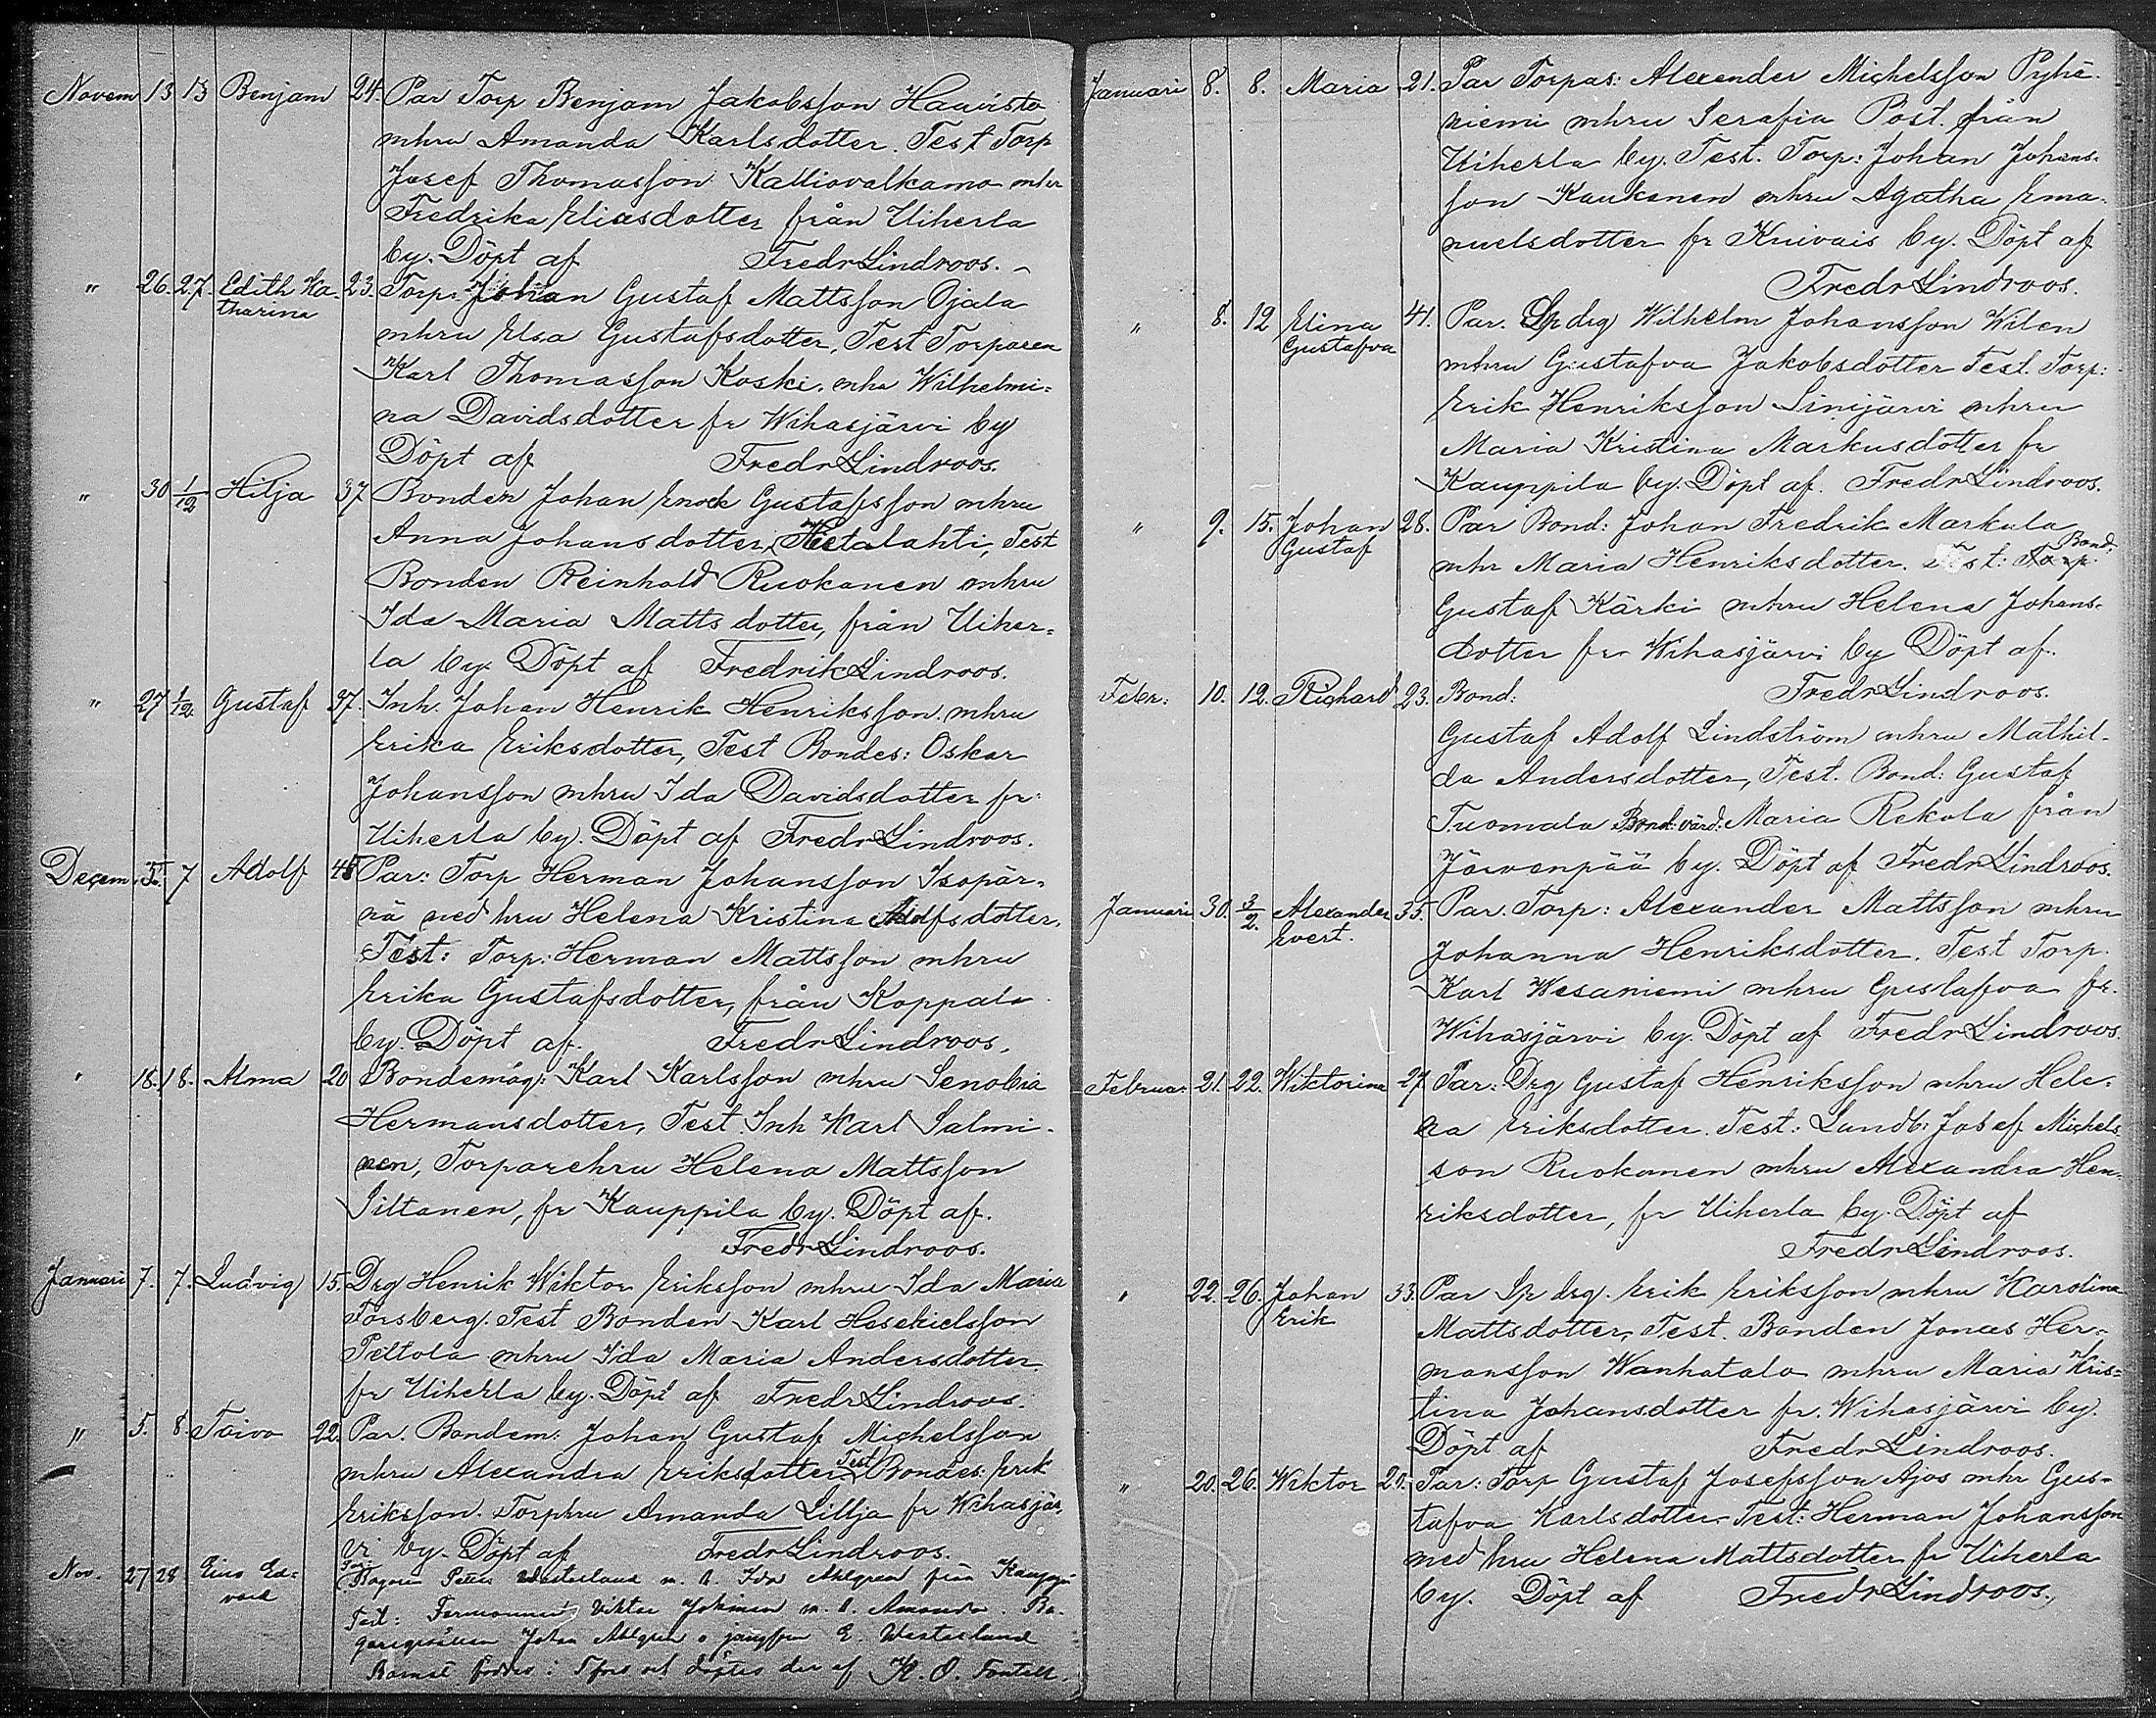 Novem 13 13 Benjam 24. Par Torp Benjam Jakobsson Haavisto
mhru Amanda Karlsdotter. Test Torp
Josef Thomasson Kalliovalkama mhr
Fredrika Eliasdotter från Uiherla
by. Döpt af Fredr Lindroos.
" 26. 27. Edith Ka- 23. Torp. Johan Gustaf Mattsson Ojala
tharina mhru Elsa Gustafsdotter, Test Torparen
Karl Thomasson Koski, mhr Wilhelmi=
na Davidsdotter fr Wihasjärvi by
Döpt af Fredr Lindroos.
" 30 1/12 Hilja 37 Bonden Johan Enock Gustafsson mhru
Anna Johansdotter, Hietalahti, Test
Bonden Reinhold Ruokanen mhru
Ida Maria Mattsdotter, från Uiher=
la by. Döpt af Fredrik Lindroos.
" 27 1/12. Gustaf 37. Inh. Johan Henrik Henriksson mhru
Erika Eriksdotter, Test Bondes: Oskar
Johansson mhru Ida Davidsdotter fr:
Uiherla by. Döpt af Fredr Lindroos.
Decem. 5. 7 Adolf 45 Par: Torp Herman Johansson Isopär=
nä med hru Helena Kristina Adolfsdotter.
Test: Torp: Herman Mattsson mhru
Erika Gustafsdotter, från Koppala
by. Döpt af. Fredr Lindroos.
" 18. 18. Alma 20 Bondemåg: Karl Karlsson mhru Senobia
Hermansdotter, Test Inh Karl Salmi-
nen, Torparehru Helena Mattsson
Siltanen, fr Kauppila by. Döpt af.
Fredr Lindroos.
Januari 7. 7. Ludvig 15. Drg Henrik Wiktor Eriksson mhru Ida Maria
Forsberg. Test Bonden Karl Hesekielsson
Peltola mhru Ida Maria Andersdotter
fr Uiherla by. Döpt af Fredr Lindroos.
" 5. 8. Toivo 22. Par. Bondem: Johan Gustaf Michelsson
mhru Alexandra Eriksdotter Test Bondes: Erik
Eriksson. Torphru Amanda Lillja fr Wihasjär,
vi by. Döpt af Fredr Lindroos.
Nov. 27 28 Eino Ed= Bagaren Westerlund m. h. Ida Ahlgren från
vard Test: Viktor Johman m. h. Amanda. Ba-
Johan Ahlgren o E. Westerlund
Barnet föddes i Tfors och döptes der af K. O. Fontell.
Januari 8. 8. Maria 21. Par Torpas: Alexander Michelsson Pyhä-
niemi mhru Serafia Post. från
Uiherla by. Test. Torp: Johan Johans=
son Kaukonen mhru Agatha Ema-
nuelsdotter fr Knivais by. Döpt af
Fredr Lindroos.
" 8. 12 Elina 41. Par. Sp drg Wilhelm Johansson Wilen
Gustafva mhru Gustafva Jakobsdotter Test. Torp:
Erik Henriksson Sinijärvi mhru
Maria Kristina Markusdotter fr
Kauppila by. Döpt af. Fredr Lindroos.
" 9. 15. Johan 28. Par Bond: Johan Fredrik Markula
Gustaf mhr Maria Henriksdotter. Test: Torp. Bond.
Gustaf Kärki mhru Helena Johans-
dotter fr Wihasjärvi by Döpt af.
Fredr Lindroos.
Febr: 10. 12. Richard 23. Bond:
Gustaf Adolf Lindström mhru Mathil-
da Andersdotter, Test. Bond: Gustaf
Tuomala Bond: värd: Maria Rekola från
Järvenpää by. Döpt af Fredr Lindroos.
Januari 30. 3/2. Alexander 35. Par. Torp: Alexander Mattsson mhru
Evert. Johanna Henriksdotter. Test Torp.
Karl Wesaniemi mhru Gustafva fr.
Wihasjärvi by. Döpt af Fredr Lindroos.
Februar. 21. 22. Wiktorina 27 Par: Drg Gustaf Henriksson mhru Hele-
na Eriksdotter. Test: Lundb: Josef Michels-
son Ruokanen mhru Alexandra Hen-
riksdotter, fr Uiherla by. Döpt af
Fredr Lindroos.
" 22. 26. Johan 33. Par Sp drg. Erik Eriksson mhru Karolina
Erik Mattsdotter, Test. Bonden Jonas Her-
mansson Wanhatalo mhru Maria Kris=
tina Johansdotter fr. Wihasjärvi by.
Döpt af Fredr Lindroos.
" 20. 26. Wiktor 20. Par: Torp Gustaf Josefsson Ajos mhr Gus-
tafva Karlsdotter. Test: Herman Johansson
med hru Helena Mattsdotter fr Uiherla
by. Döpt af Fredr Lindroos.